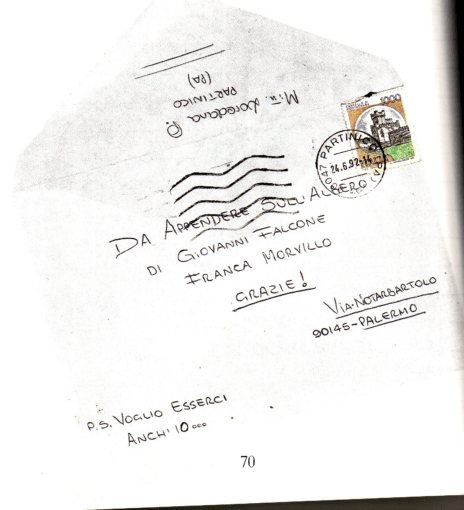 Mitt. Loredana P.
PARTINICO
(PA)
1000
PARTINICO
24.6.92-14
DA APPENDERE SULL'ALBERO
DI GIOVANNI FALCONE
FRANCA MORVILLO
GRAZIE!
VIA NOTARBARTOLO
90145-PALERMO
P.S. VOGLIO ESSERCI
ANCH' IO...
70